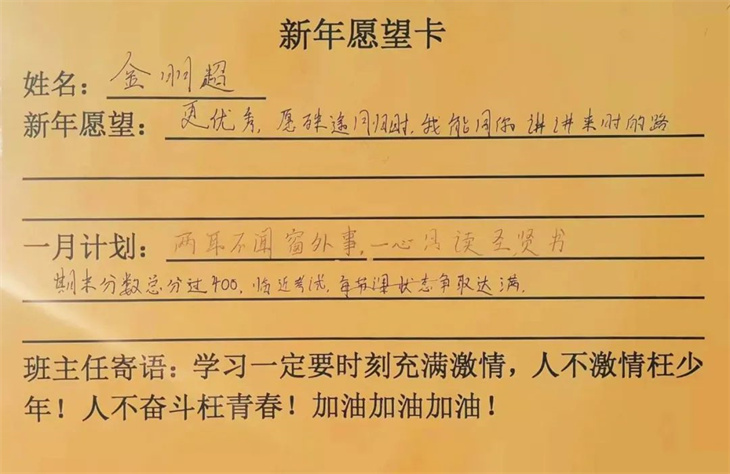 新年愿望卡
姓名：金羽超
新年愿望：更优秀，愿殊途同归时，我能同你讲讲来时的路
一月计划：两耳不闻窗外事，一心只读圣贤书
期末分数总分过400，临近考试，每节课状态争取达满．
班主任寄语：学习一定要时刻充满激情，人不激情枉少
年！人不奋斗枉青春！加油加油加油！